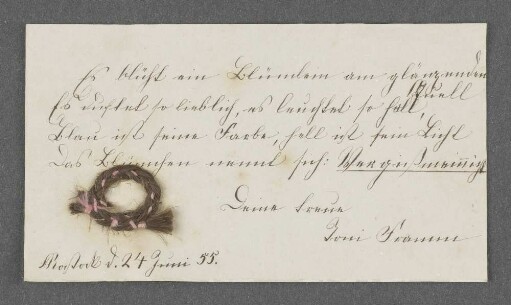 Es blüht ein Blümlein am glänzenden Quell
Es duftet so lieblich, es leuchtet so hell,
Blau ist seine Farbe, hell ist sein Licht
Das Blümchen nennt sich: Vergißmeinnicht
Deine treue
Toni Framm
Rostock d. 24 Juni 55.